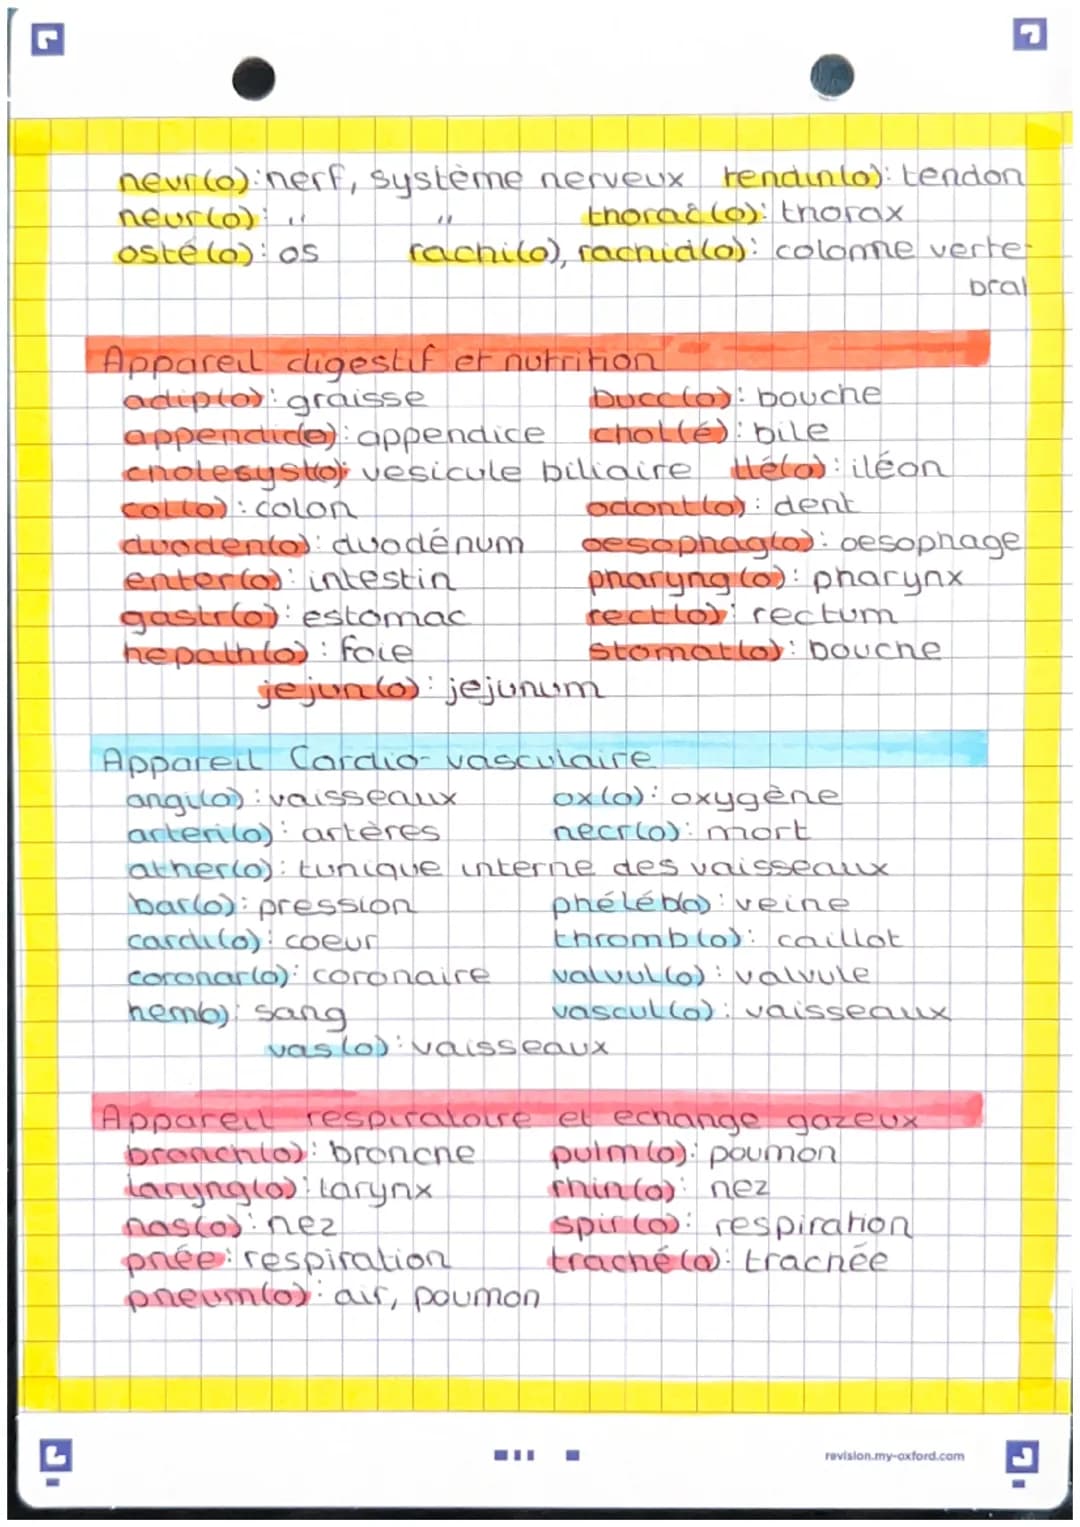 neur(o): nerf, système nerveux tendin(o): tendon
neur(o): " " thorac(o): thorax
osté(o): os rachi(o), rachid(o): colonne verte-
bral
Appareil digestif et nutrition
adip(o): graisse bucc(o): bouche
appendic(o): appendice chol(é): bile
cholesyst(o): vesicule biliaire iléo(o): iléon
col(o): colon odont(o): dent
duoden(o): duodénum oesophag(o): oesophage
enter(o): intestin pharyng(o): pharynx
gastr(o): estomac rect(o): rectum
hepath(o): foie stomat(o): bouche
jejun(o): jejunum
Appareil Cardio-vasculaire
angi(o): vaisseaux ox(o): oxygène
arteri(o): artères necr(o): mort
ather(o): tunique interne des vaisseaux
bar(o): pression phéléb(o): veine
cardi(o): coeur thromb(o): caillot
coronar(o): coronaire valvul(o): valvule
hem(o): sang vascul(o): vaisseaux
vas(o): vaisseaux
Appareil respiratoire et echange gazeux
bronch(o): bronche pulm(o): poumon
laryng(o): larynx rhin(o): nez
nas(o): nez spir(o): respiration
pnée: respiration traché(o): trachée
pneum(o): air, poumon
revision.my-oxford.com